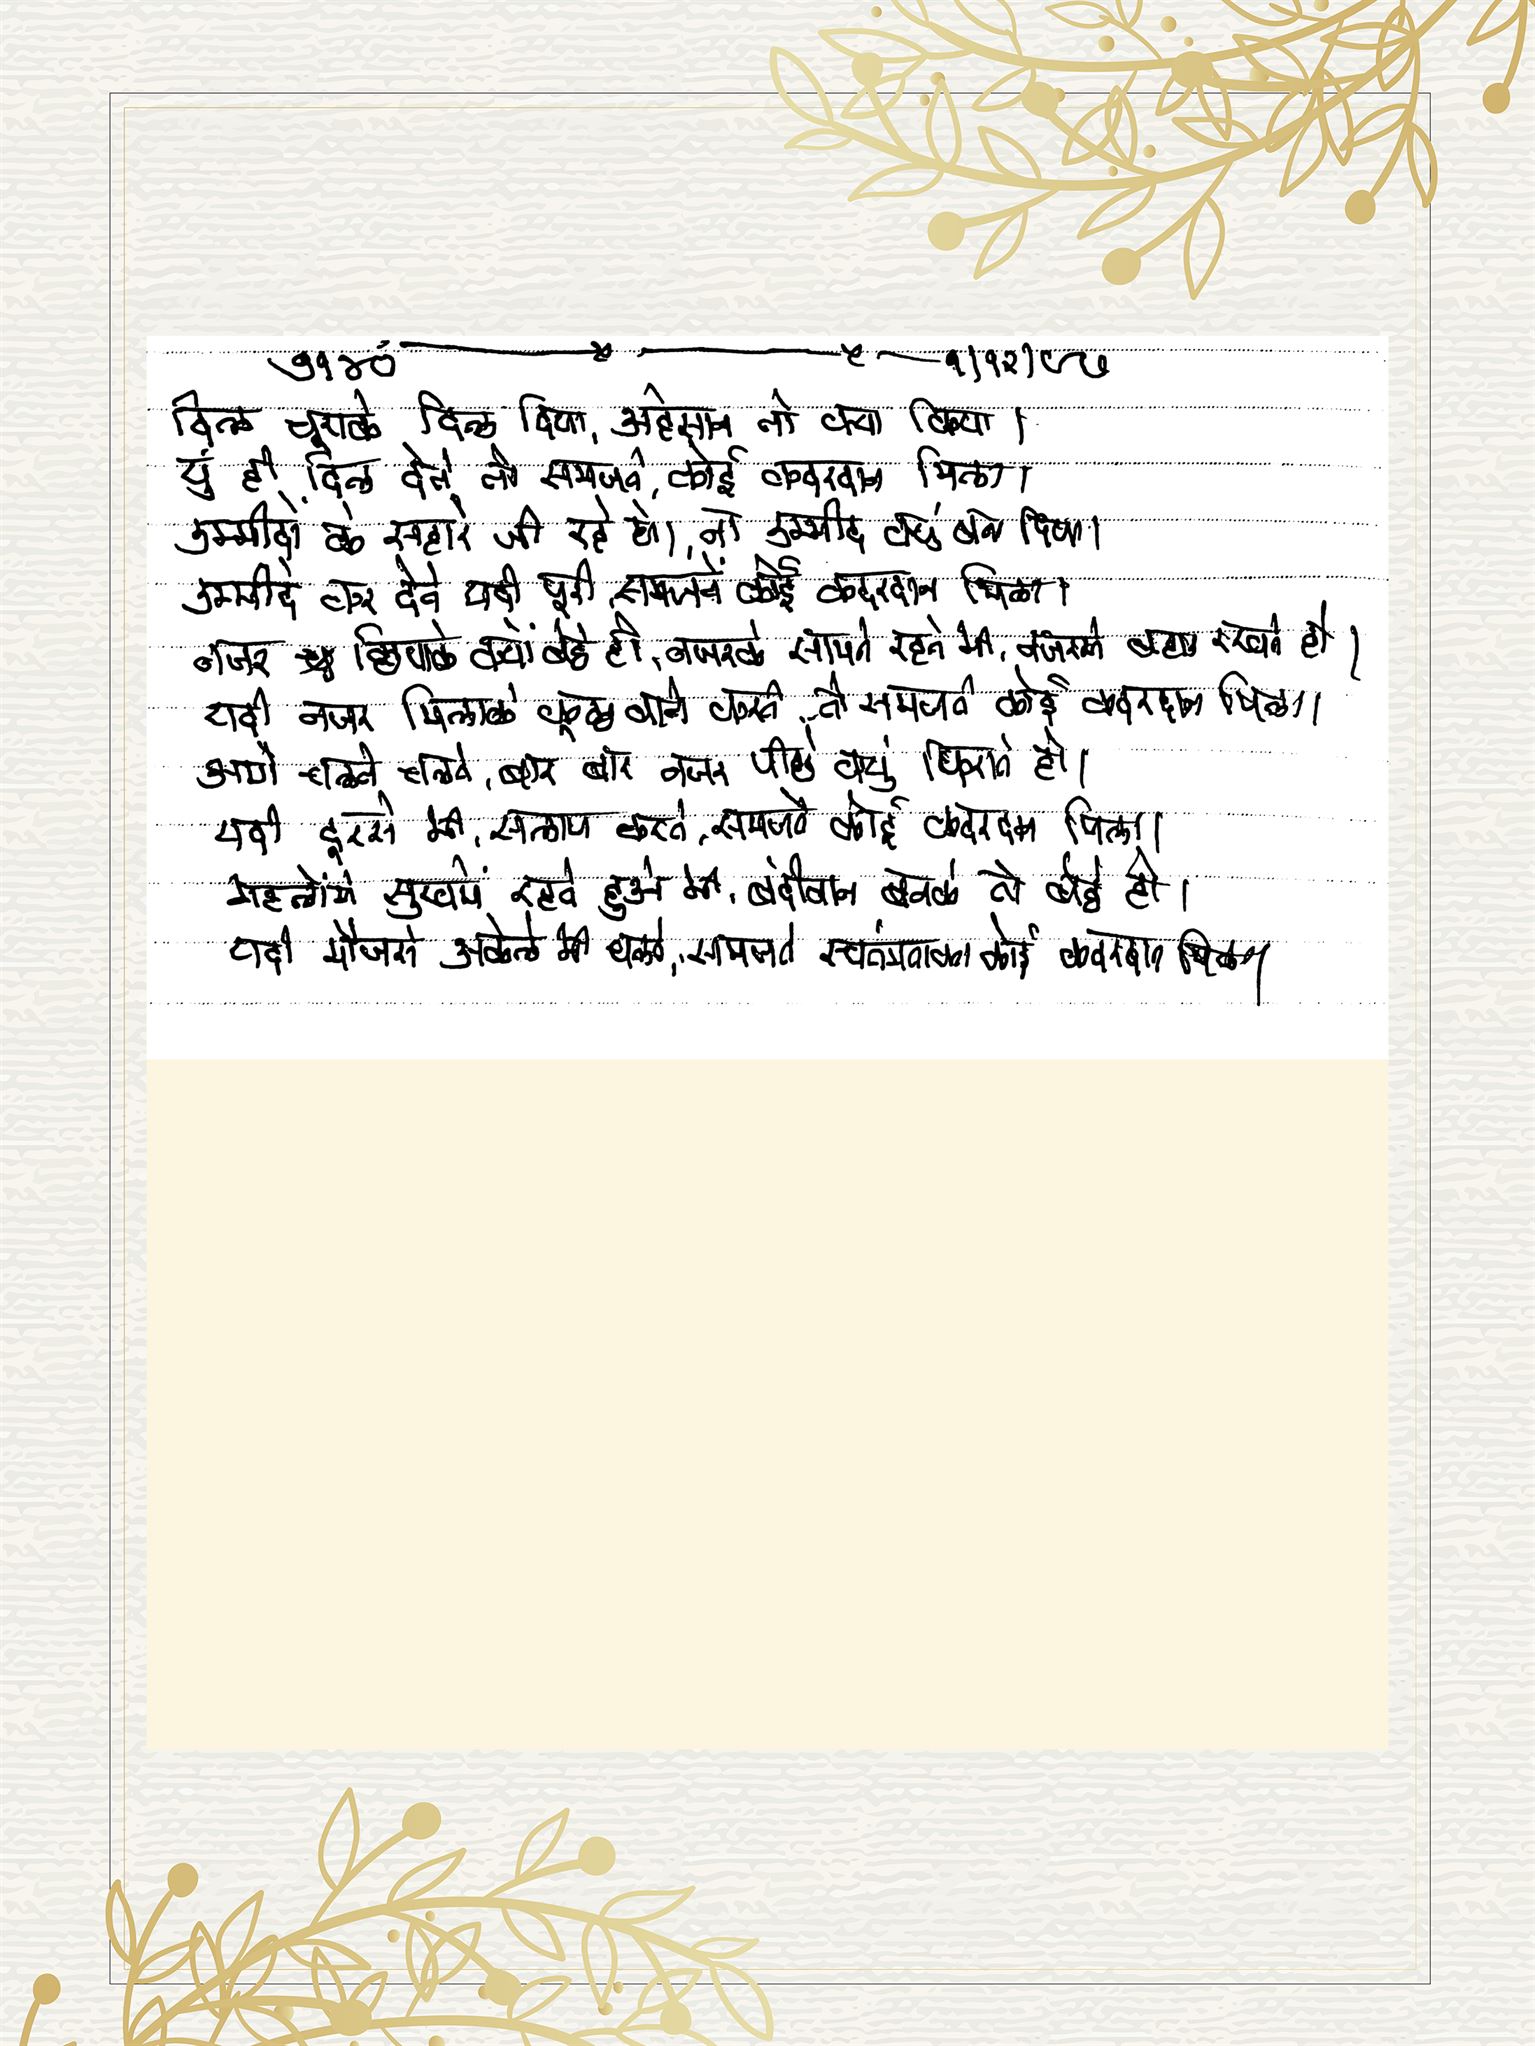 ७१४० १/१२/८७
दिल चूराके दिल दिया, अहेसान तो क्या किया ।
युं ही दिल देते तो समजते, कोई कदरदान मिला ।
उम्मीदों के सहारे जी रहे थे ।, तो उम्मीद क्युं बना दिया ।
उम्मीदे कर देते यदी पूरी, समजते कोई कदरदान मिला ।
नजर छिपाके क्यों बैठे हो, नजरके सामने रहते भी, नजरसे बहार रखते हो ।
यदी नजर मिलाके कूछ बाते करते, तो समजते कोई कदरदान मिला ।
आगे चलते चलते, बार बार नजर पीछे क्युं फिराते हो ।
यदी दूरसे भी, सलाम करते, समजते कोई कदरदान मिला ।
महलोंमें सुखमें रहते हुओ भी, बंदीवान बनके तो बैठे हो ।
यदी मौजसे अकेले भी चलते, समजते स्वतंत्रताका कोई कदरदान मिला ।